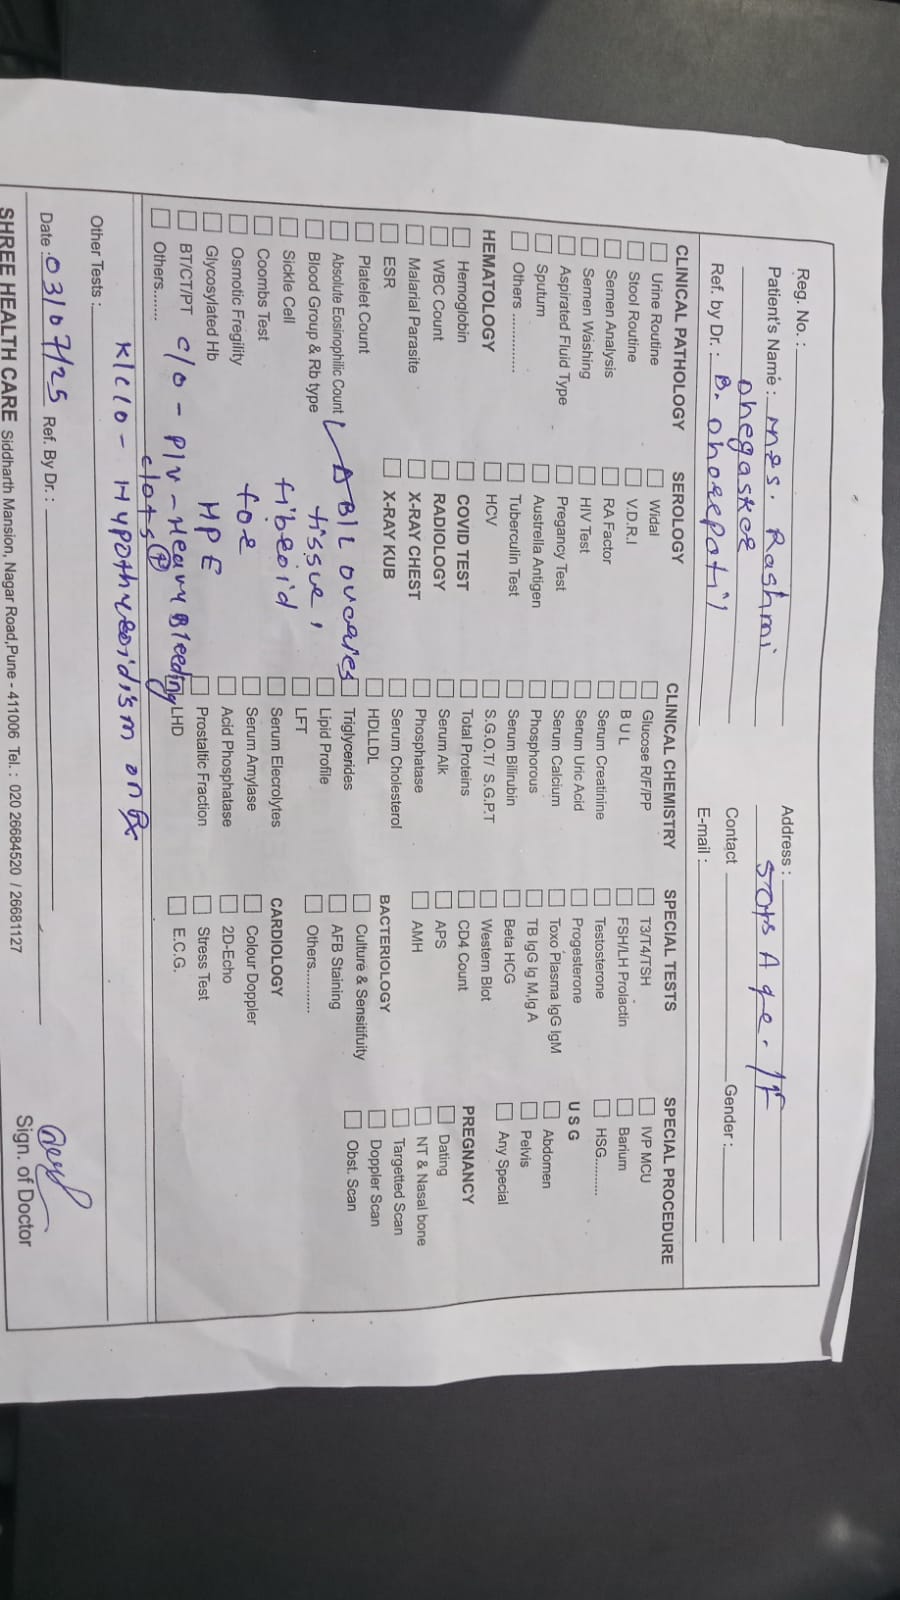 Reg. No. :
Patient's Name : mrs. Rashmi
Dhegaskar
Ref. by Dr. : B. Ghorepatil
Address :
50 yrs Age. / F
Contact Gender :
E-mail :
CLINICAL PATHOLOGY
Urine Routine
Stool Routine
Semen Analysis
Semen Washing
Aspirated Fluid Type
Sputum
Others .............
HEMATOLOGY
Hemoglobin
WBC Count
Malarial Parasite
ESR
Platelet Count
Absolute Eosinophilic Count
Blood Group & Rb type
Sickle Cell
Coombs Test
Osmotic Fregility
Glycosylated Hb
BT/CT/PT
Others........
SEROLOGY
Widal
V.D.R.I
RA Factor
HIV Test
Pregancy Test
Australia Antigen
Tuberculin Test
HCV
COVID TEST
RADIOLOGY
X-RAY CHEST
X-RAY KUB
B/L ovaries
tissue,
fibroid
for
HPE
c/o - P/V - Heavy Bleeding
clots (+)
CLINICAL CHEMISTRY
Glucose R/F/PP
B U L
Serum Creatinine
Serum Uric Acid
Serum Calcium
Phosphorous
Serum Bilirubin
S.G.O.T/ S.G.P.T
Total Proteins
Serum Alk
Phosphatase
Serum Cholesterol
HDLLDL
Triglycerides
Lipid Profile
LFT
Serum Elecrolytes
Serum Amylase
Acid Phosphatase
Prostaltic Fraction
LHD
SPECIAL TESTS
T3/T4/TSH
FSH/LH Prolactin
Testosterone
Progesterone
Toxo Plasma IgG IgM
TB IgG Ig M,Ig A
Beta HCG
Western Blot
CD4 Count
APS
AMH
BACTERIOLOGY
Culture & Sensitifuity
AFB Staining
Others............
CARDIOLOGY
Colour Doppler
2D-Echo
Stress Test
E.C.G.
SPECIAL PROCEDURE
IVP MCU
Barium
HSG..........
U S G
Abdomen
Pelvis
Any Special
PREGNANCY
Dating
NT & Nasal bone
Targetted Scan
Doppler Scan
Obst. Scan
K/c/o - Hypothyroidism on Rx
Other Tests :
Date : 03/07/25 Ref. By Dr. :
Sign. of Doctor
SHREE HEALTH CARE Siddharth Mansion, Nagar Road,Pune - 411006 Tel. : 020 26684520 / 26681127